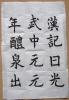 漢記曰光
武中元元
年醴泉出